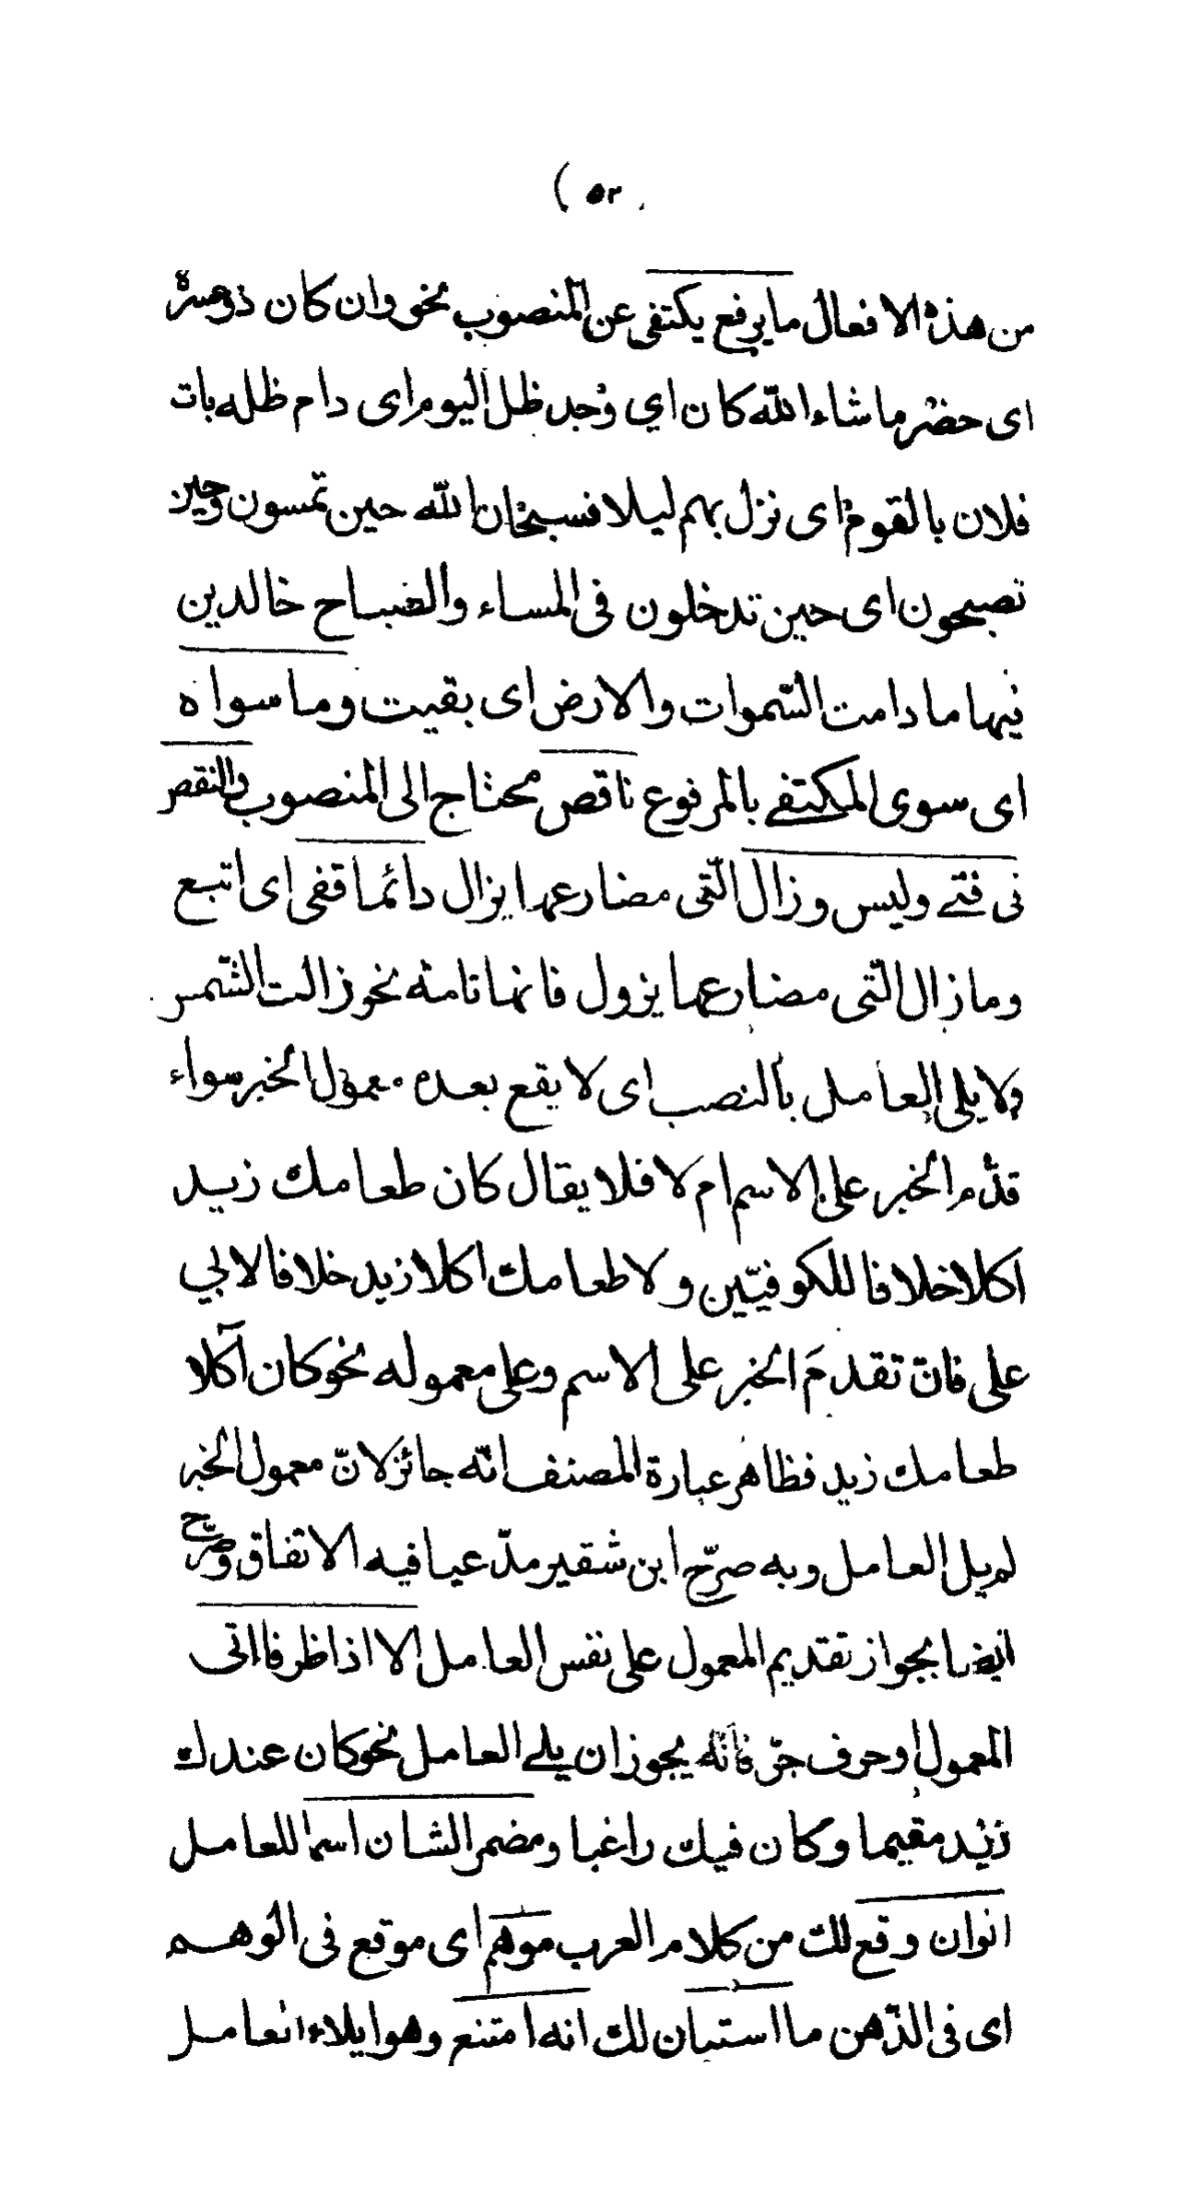 ( ٥٢
من هذه الافعال ما يرفع يكتفى عن المنصوب نحو وان كان ذو عسرة
اى حضر ما شاء الله كان اي وجد ظل اليوم اى دام ظله بات
فلان بالقوم اى نزل بهم ليلا فسبحان الله حين تمسون وحين
تصبحون اى حين تدخلون فى المساء والصباح خالدين
فيها ما دامت السّموات والارض اى بقيت وما سواه
اى سوى المكتفے بالمرفوع ناقص محتاج الى المنصوب والنقص
فى فتے وليس وزال الّتى مضارعها يزال دائما قفى اى اتبع
وما زال الّتى مضارعها يزول فانها تامة نحو زالت الشّمس
ولا يلى العامل بالنصب اى لا يقع بعده معمول الخبر سواء
قدّم الخبر على الاسم ام لا فلا يقال كان طعامك زيد
اكلا خلافا للكوفيّين ولا طعامك اكلا زيد خلافا لابي
على فانّ تقدمَ الخبر على الاسم وعلى معموله نحو كان آكلا
طعامك زيد فظاهر عبارة المصنف انّه جائز لانّ معمول الخبر
لم يل العامل وبه صرّح ابن شقير مدّعيا فيه الاتفاق وصرّح
ايضا بجواز تقديم المعمول على نفس العامل الا اذا ظرفا اتى
المعمول او حرف جرّ فانّه يجوز ان يلے العامل نحو كان عندك
زيد مقيما وكان فيك راغبا ومضمر الشان اسما للعامل
انو ان وقع لك من كلام العرب موهم اى موقع فى الوهم
اى فى الذّهن ما استبان لك انه امتنع وهو ايلاء العامل